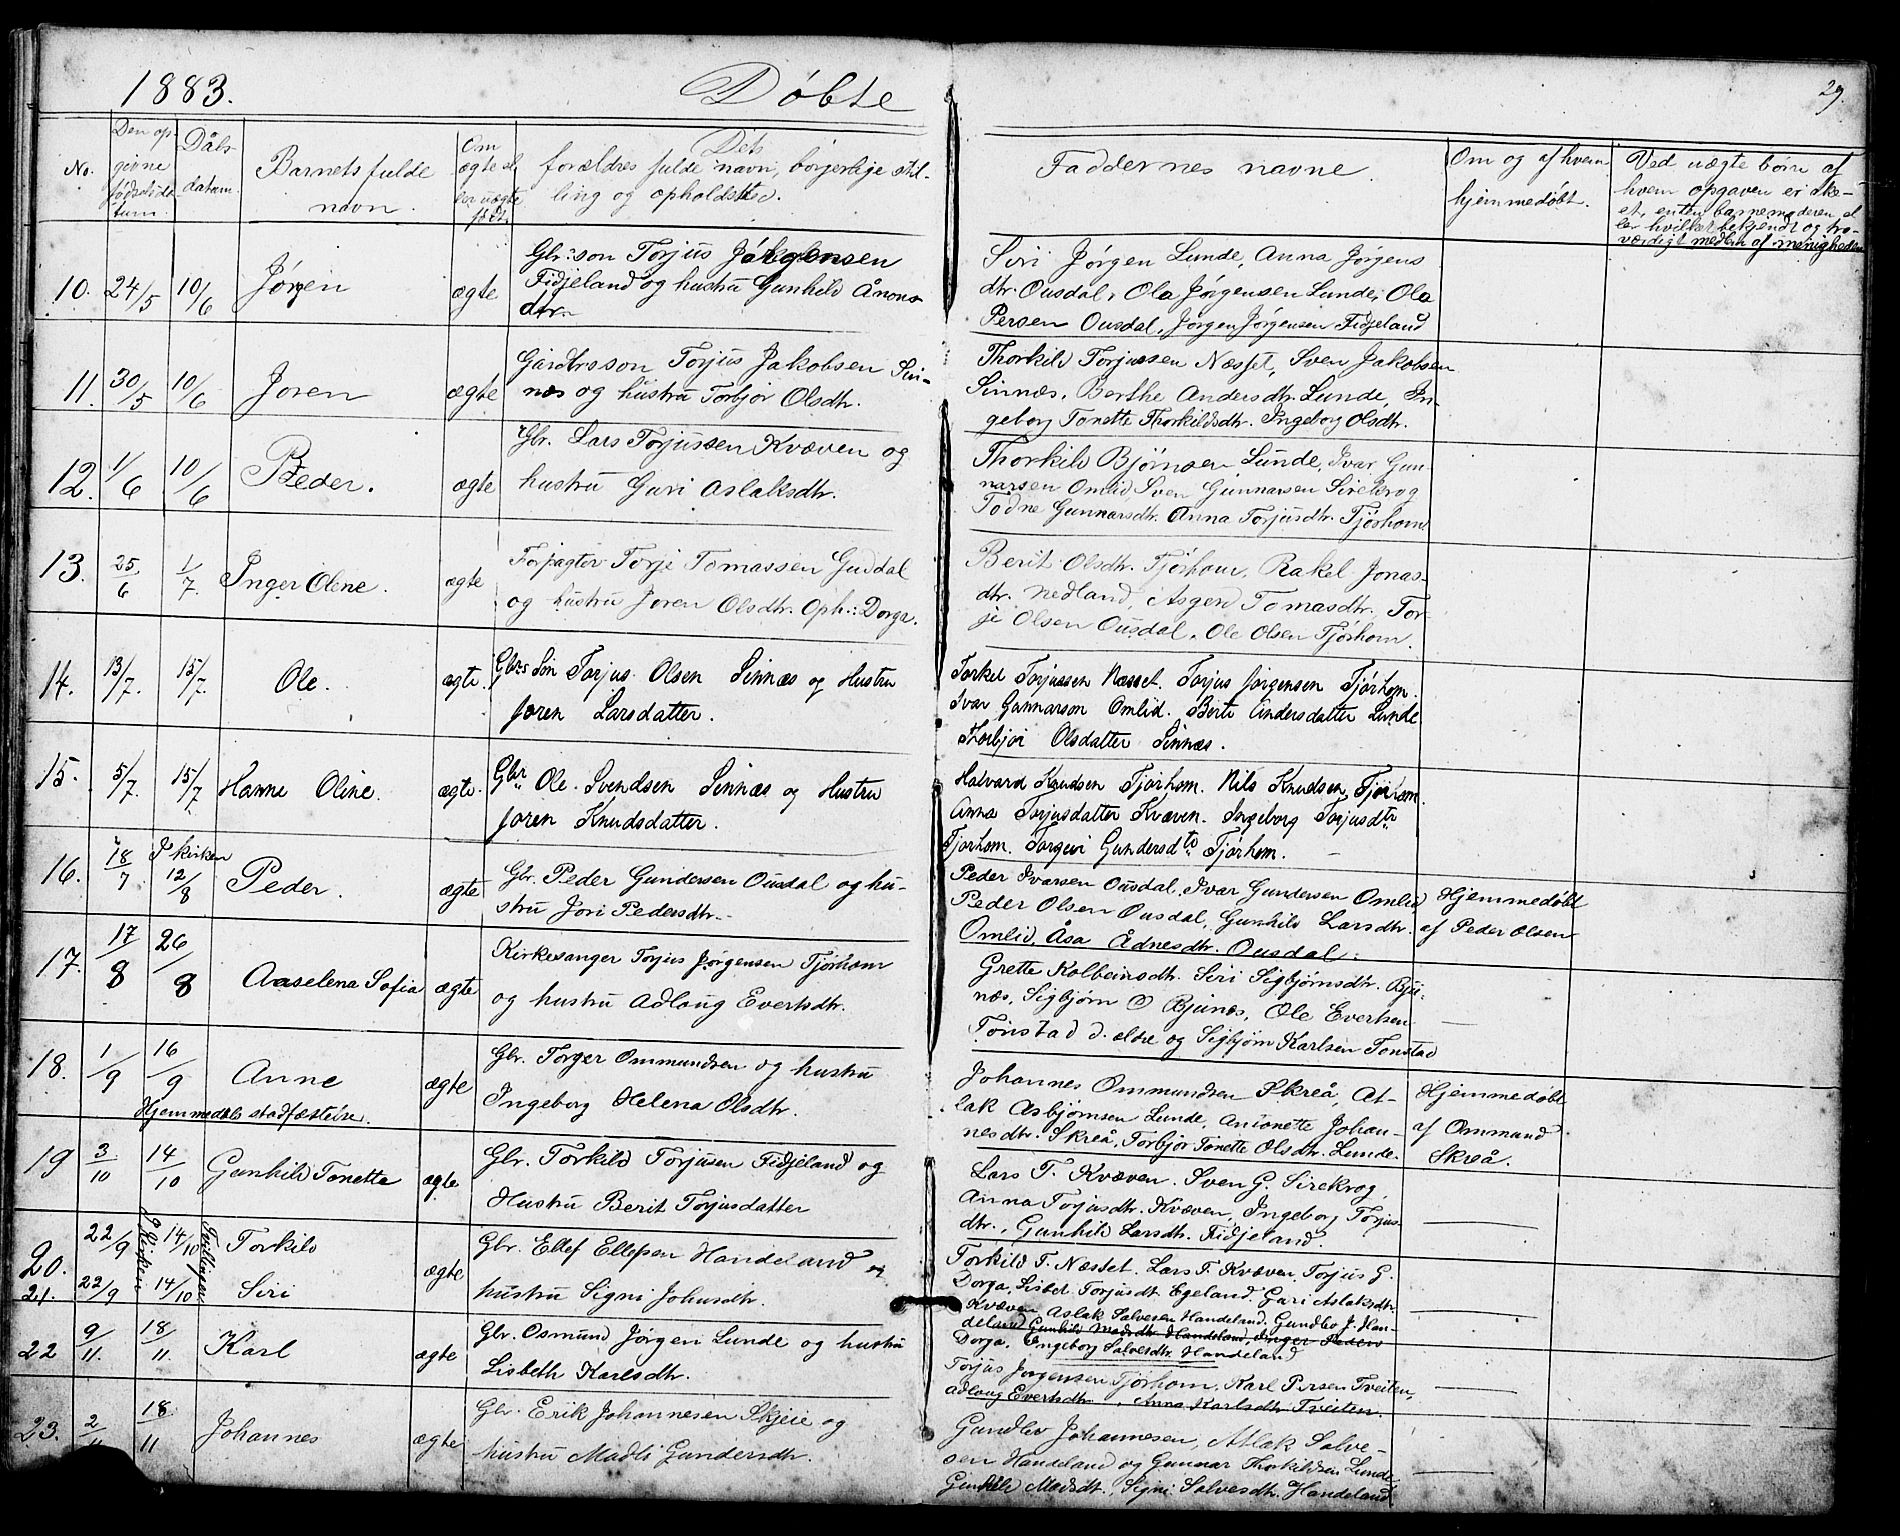 1883.
Døbte
29.
No.
Den op-
givne
fødselsda-
tum.
Dåbs-
datum.
Barnets fulde
navn.
Om
ægte el-
ler uægte
født.
Dets
forældres fulde navn, borgerlige stil-
ling og opholdsted.
Faddernes navne.
Om og af hvem
hjemmedøbt.
Ved uægte børn af
hvem opgaven er ske-
et, enten barnemoderen el-
ler hvilket bekjendt og tro-
værdigt medlem af menigheden
10. 24/5 10/6 Jørgen ægte
Gbr.:son Torjus Jørgensen
Fidjeland og hustru Gunhild Ånons-
dtr.
Siri Jørgen Lunde, Anna Jørgens
dtr. Ousdal, Ola Jørgensen Lunde, Ola
Persen Ousdal, Jørgen Jørgensen Fidjeland
11. 30/5 10/6 Joren ægte
Gårdbrsson Torjus Jakobsen Sin-
næs og hustru Torbjør Olsdtr.
Thorkild Torjussen Næsset, Sven Jakobsen
Sinnæs, Berthe Andersdtr. Lunde, In-
geborg Tonette Thorkildsdtr. Ingeborg Olsdtr.
12. 1/6 10/6 Peder. ægte
Gbr. Lars Torjussen Kvæven og
hustru Guri Aslaksdtr.
Thorkild Bjørnsen Lunde, Ivar Gun-
narsen Omlid, Sven Gunnarsen Sirekrog
Todne Gunnarsdtr. Anna Torjusdtr. Tjørhom
13. 25/6 1/7. Inger Oline. ægte
Forpagter Torje Tomassen Guddal
og hustru Joren Olsdtr. Oph.: Dorga.
Berit Olsdtr. Tjörhom, Rakel Jonas-
dtr. Nedland, Asgerd Tomasdtr. Tor-
je Olsen Ousdal, Ole Olsen Tjörhom.
14. 13/7. 15/7. Ole. ægte.
Gbrs Søn Torjus Olsen Sinnæs og Hustru
Joren Larsdatter.
Torkel Torjussen Næsset. Torjus Jørgensen Tjørhom.
Ivar Gunnarson Omlid. Berte Andersdatter Lunde
Thorbjør Olsdatter Sinnæs.
15. 5/7. 15/7. Hanne Oline. ægte.
Gbr Ole Svendsen Sinnæs og Hustru
Joren Knudsdatter.
Halvard Knudsen Tjørhom. Nils Knudsen Tjørhom.
Anna Torjusdatter Kvæven. Ingeborg Torjusdtr
Tjørhom. Torgun Gundersdtr Tjørhom.
16. 18/7 I kirken 12/8 Peder. ægte
Gbr. Peder Gundersen Ousdal og hu-
stru Jori Pedersdtr.
Peder Ivarsen Ousdal, Ivar Gundersen Omlid,
Peder Olsen Ousdal, Gunhild Larsdtr.
Omlid, Åsa Ådnesdtr. Ousdal.
Hjemmedøbt
af Peder Olsen
17. 17/8 26/8 Aaselena Sofia ægte
Kirkesanger Torjus Jørgensen Tjörhom
og hustru Adloug Evertsdtr.
Grette Kolbeinsdtr. Siri Sigbjørnsdtr. Bju-
næs, Sigbjørn O Bjunes, Ole Evertsen
Tonstad d. eldre og Sigbjørn Karlsen Tonstad
18. 1/9 16/9 Anne ægte
Hjemmedåb stadfæstelse.
Gbr. Torger Ommundsen og hustru
Ingeborg Helena Olsdtr.
Johannes Ommundsen Skreå, At-
lak Asbjørnsen Lunde, Antonette Johan-
nesdtr. Skreå, Torbjør Tonette Olsdtr. Lunde.
Hjemmedøbt
af Ommund
Skreå.
19 3/10 14/10 Gunhild Tonette ægte
Gbr. Torkild Torjusen Fidjeland og
Hustru Berit Torjusdatter
Lars T. Kvæven. Sven G. Sirekrog,
Anna Torjusdtr. Kvæven, Ingeborg Torjus-
dtr., Gunhild Larsdtr. Fidjeland.
20. 22/9 I Kirken 14/10 Tvillinger Torkild
21. 22/9 14/10 Siri ægte
Gbr. Ellef Ellefsen Handeland og
hustru Signi Johusdtr.
Torkild T. Næsset. Lars T. Kvæven. Torjus G.
Dorga, Lisbet Torjusdt Egeland. Guri Aslaksdtr
Kvæven, Aslak Salvesen Handeland. Gundlev J. Han-
deland Gunhild Madsdtr Handeland, Inger Peders
Dorga, Ingeborg Salvesdtr. Handeland
22 9/11. 18/11. Karl ægte
Gbr. Osmund Jørgen Lunde og hustru
Lisbeth Karlsdtr.
Torjus Jørgensen Tjørhom, Karl Persen Tveiten,
Adloug Evertsdtr, Anna Karlsdtr Tveiten.
23. 2/11 18/11 Johannes ægte
Gbr. Erik Johannesen Skjeie og
hustru Madli Gundersdtr.
Gundlev Johannesen, Atlak Salve-
sen Handeland og Gunnar Thorkildsen Lunde
Gunhild Madsdt., Signi Salvesdtr. Handeland